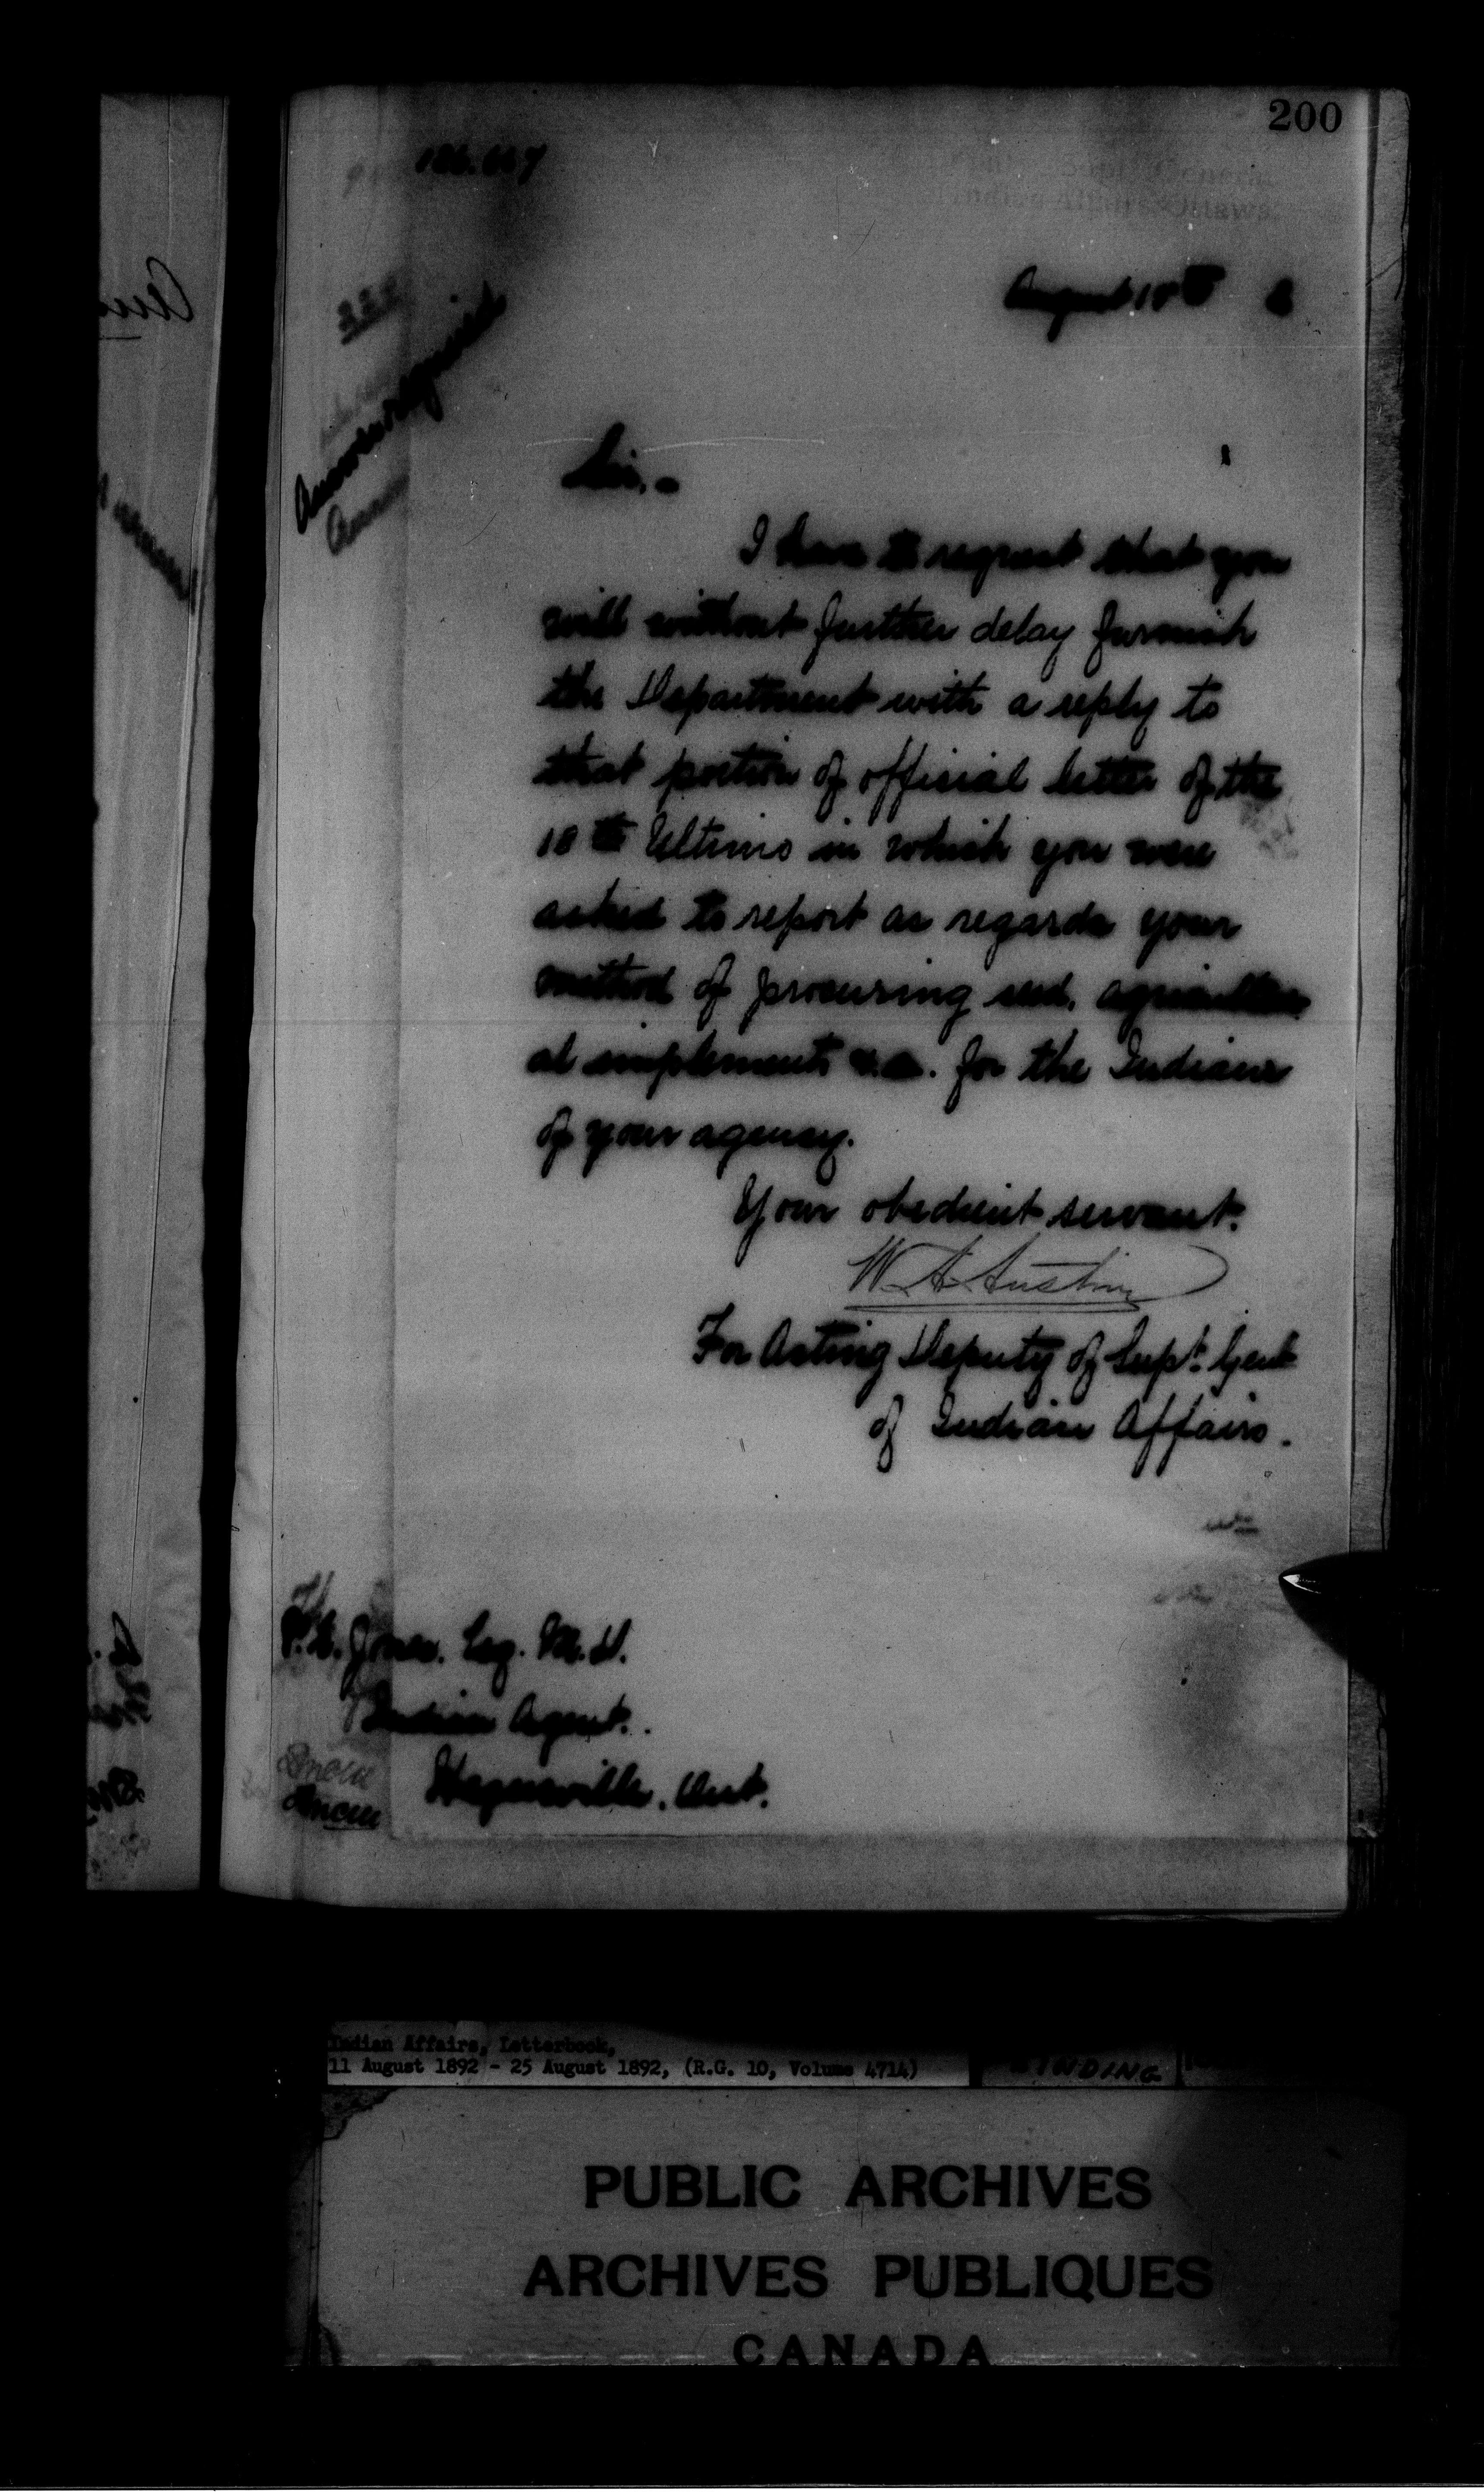 200
Supt. General
Indian Affairs Ottawa
August 18th 2
Answer required
Sir,-
I have to request that you
will without further delay furnish
the Department with a reply to
that portion of official letter of the
18th Ultimo in which you were
asked to report as regards your
method of procuring seed, agricultur
al implements &c. for the Indians
of your agency.
Your obedient servant.
W. A. Austin
For Acting Deputy of Supt. Genl
of Indian Affairs.
P.E. Jones. Esq. M.D.
Indian Agent.
Hagersville. Ont.
Indian Affairs, Letterbook,
11 August 1892 - 25 August 1892, (R.G. 10, Volume 4714)
BINDING
PUBLIC ARCHIVES
ARCHIVES PUBLIQUES
CANADA